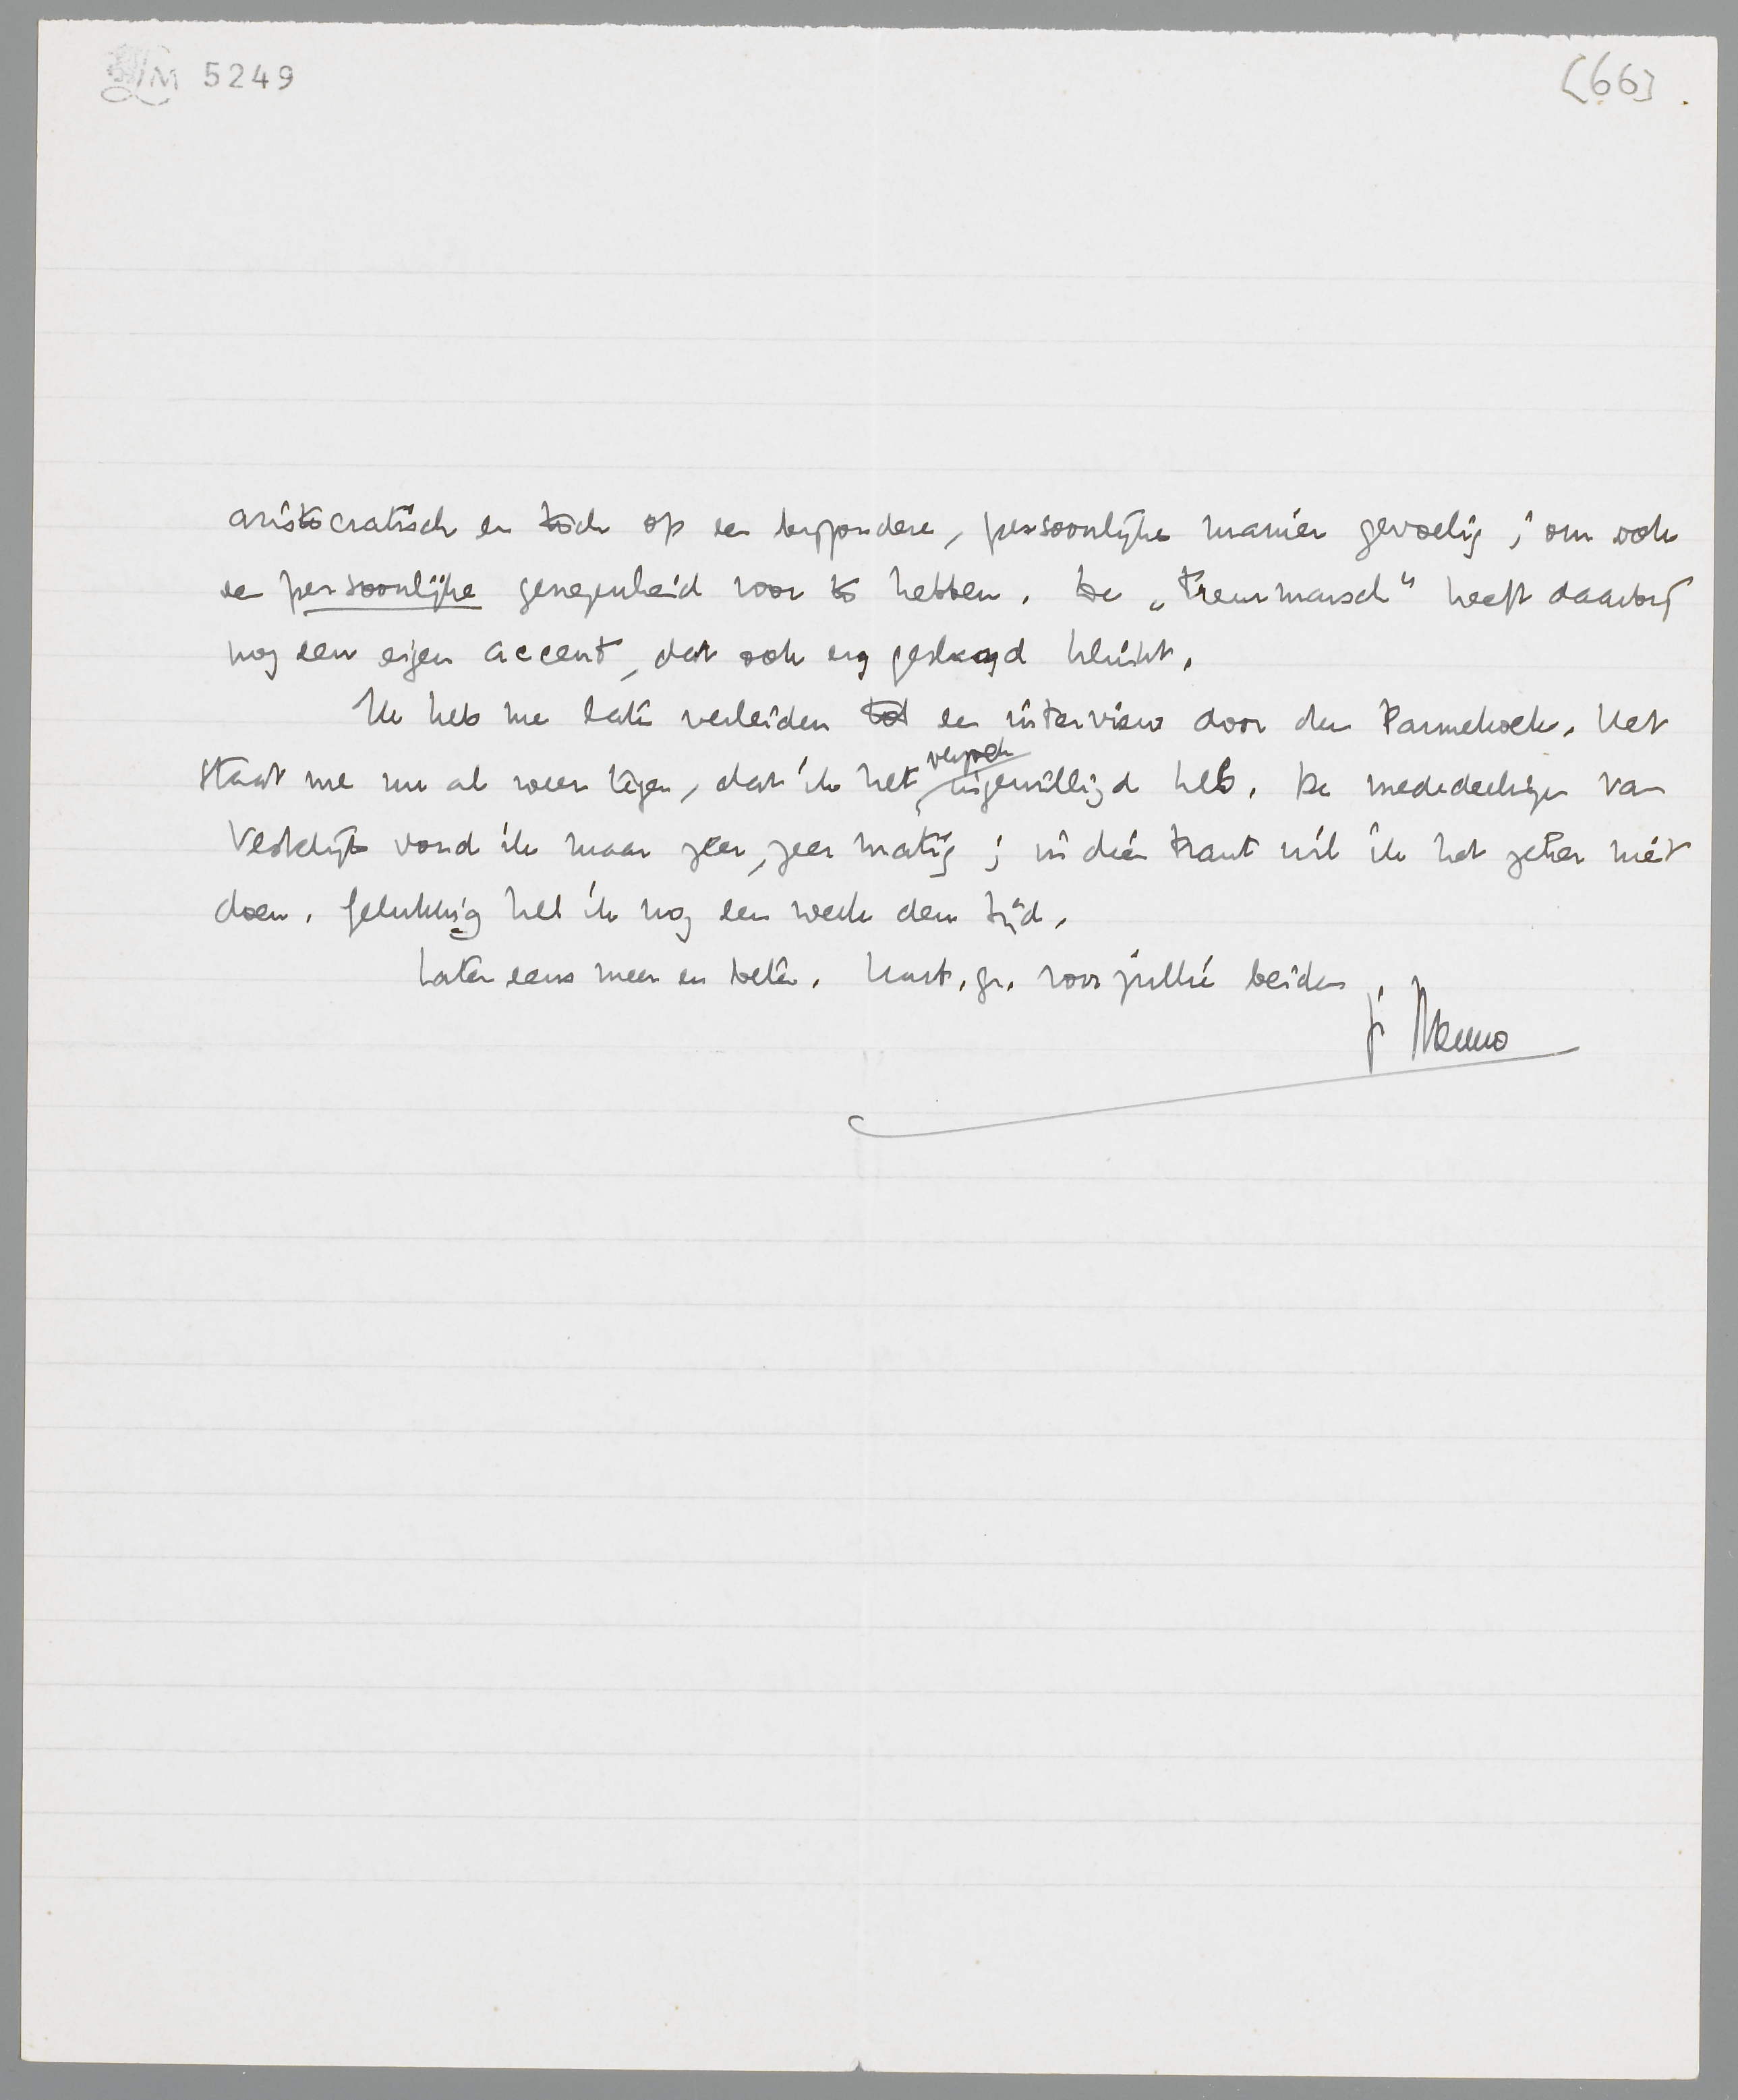 LM 5249
[66]
aristocratisch en toch op een bijzondere, persoonlijke manier gevoelig; om ook
een persoonlijke genegenheid voor te hebben. De „Treurmarsch" heeft daarbij
nog een eigen accent, dat ook erg geslaagd klinkt.
Ik heb me laten verleiden tot een interview door den Pannekoek. Het
staat me nu al weer tegen, dat ik het verzoek ingewilligd heb. De mededeelingen van
Vestdijk vond ik maar zeer, zeer matig; in dien trant wil ik het zeker niet
doen. Gelukkig heb ik nog een week den tijd.
Later eens meer en beter. Hart. gr. voor jullie beiden,
je Menno